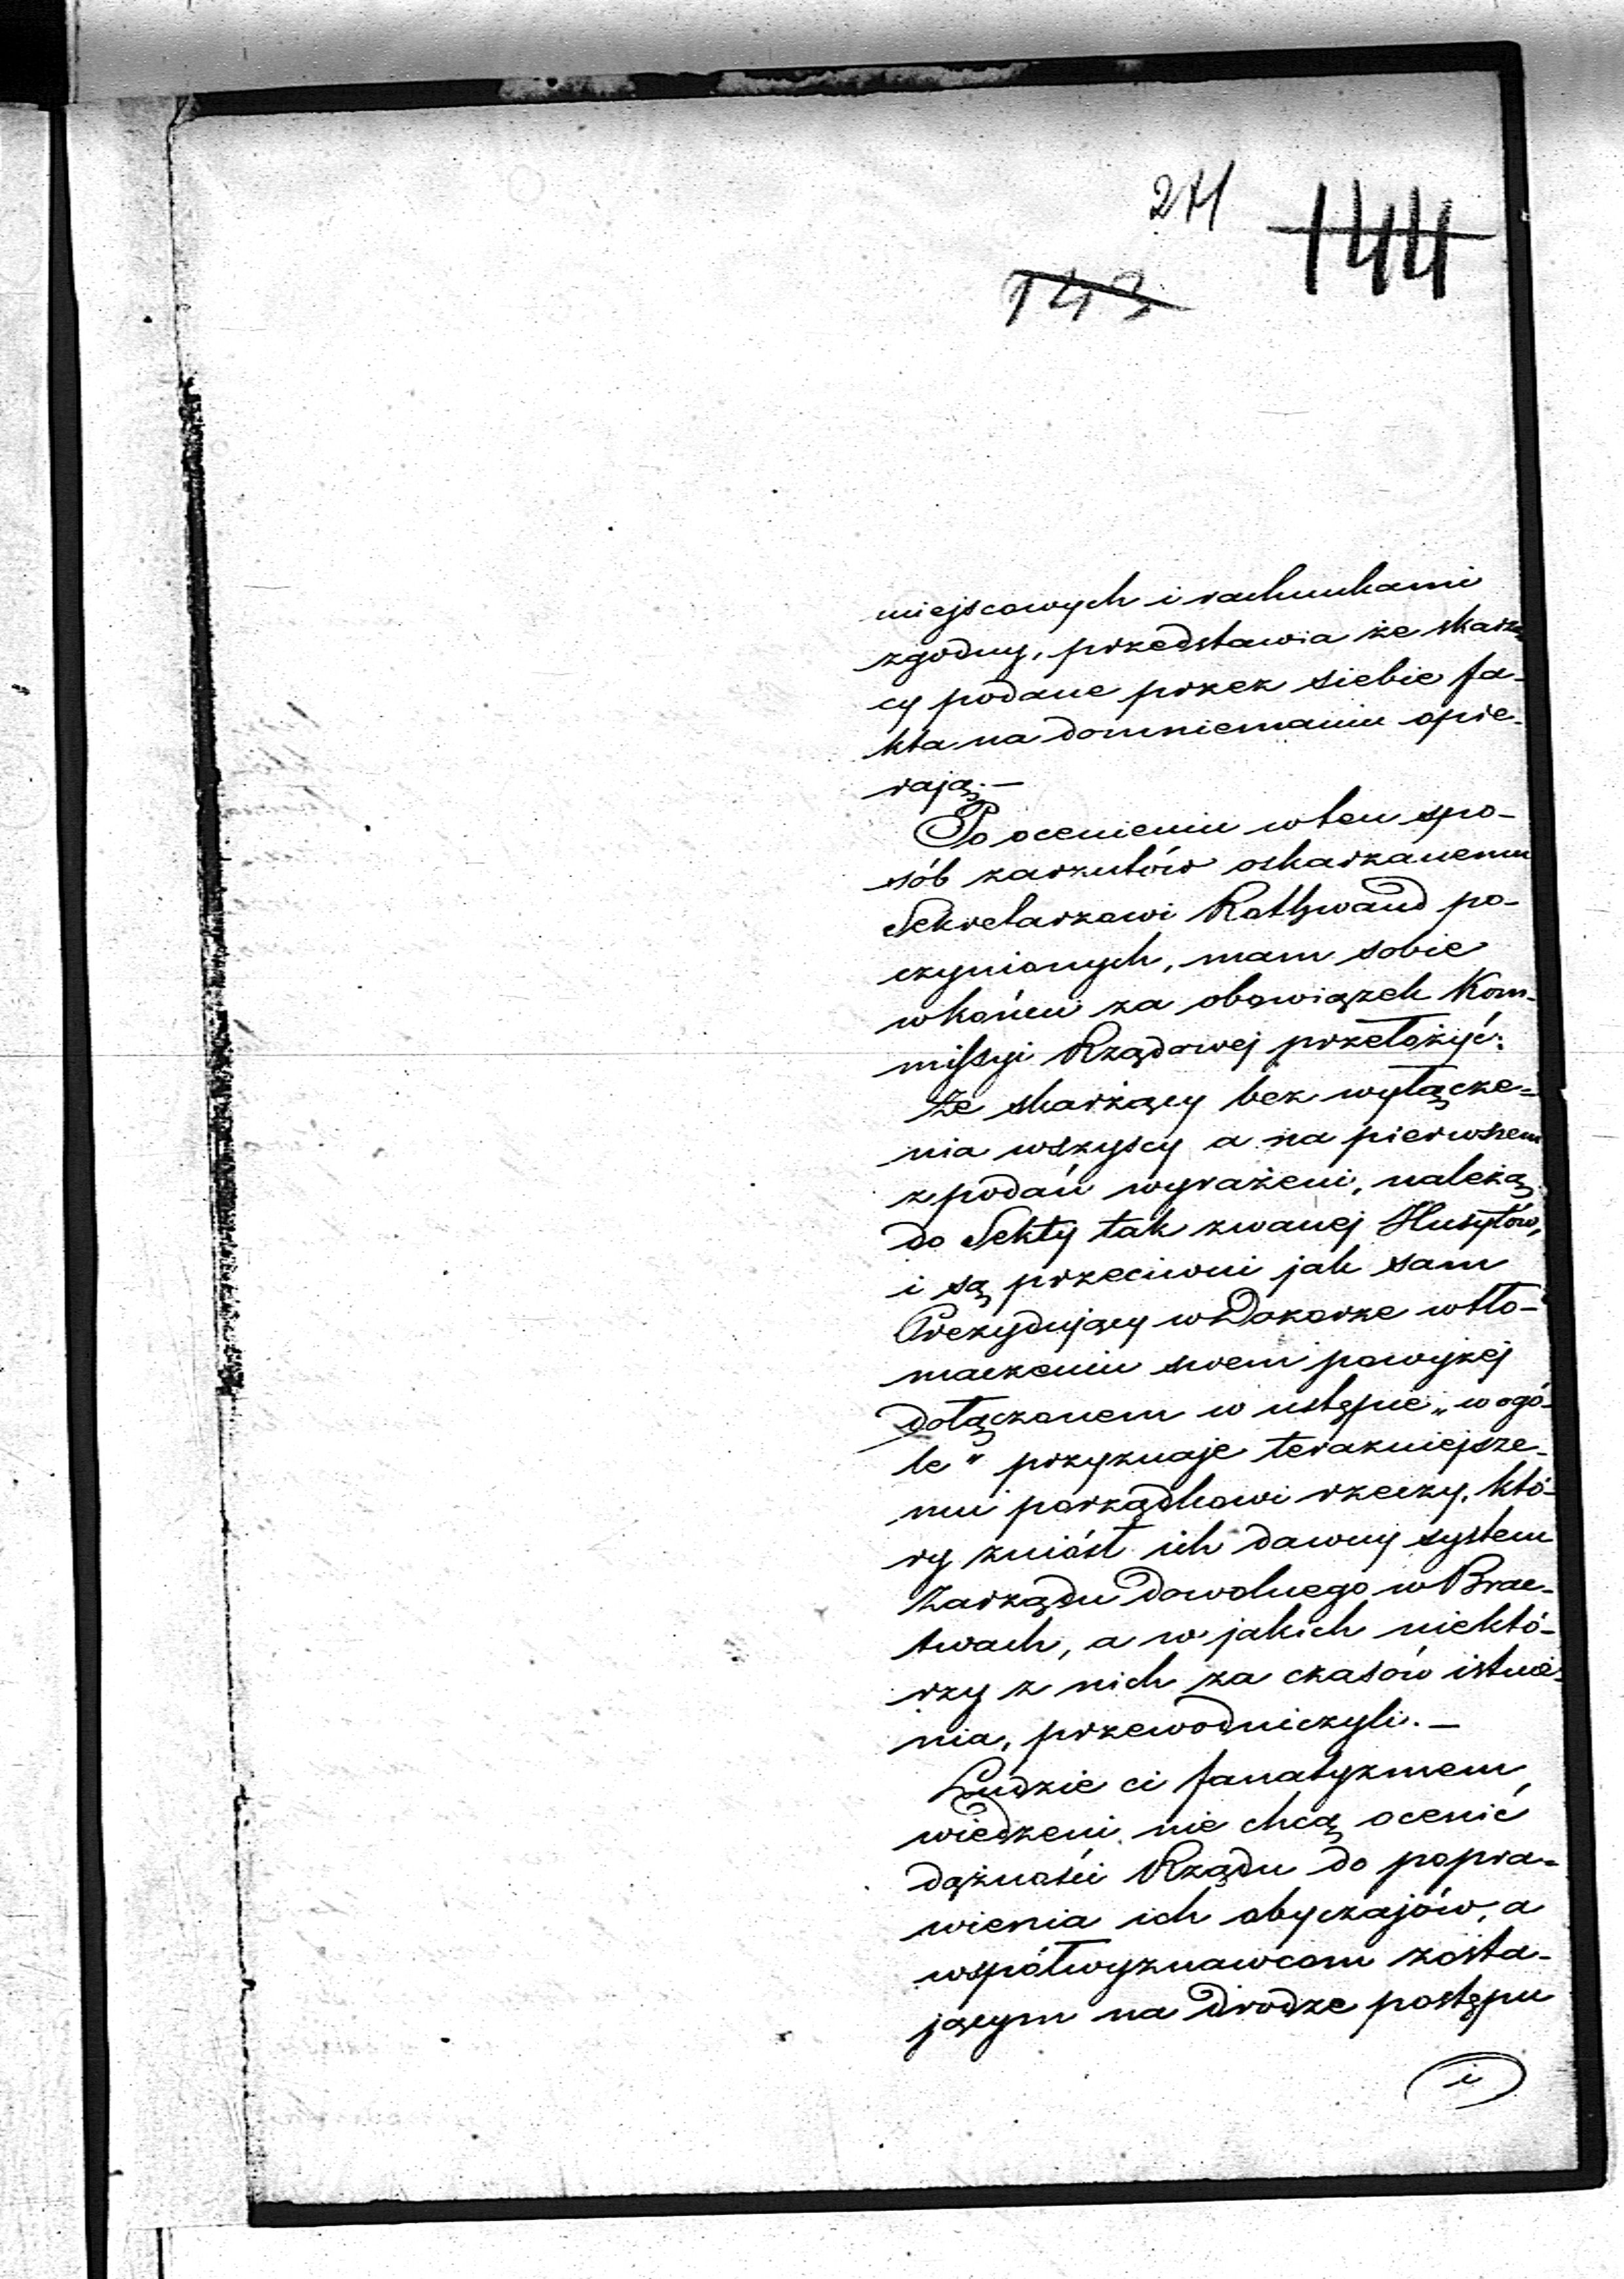 271
144
143
miejscowych i rachunkami
zgodny, przedstawia że skarżą
cy podane przez siebie fa-
kta na domniemaniu opie-
rają.—
Po ocenieniu w ten spo-
sób zarzutów oskarżanemu
Sekretarzowi Rothwand po-
czynionych, mam sobie
wkońcu za obowiązek Kom-
missyi Rządowej przełożyć:
że skarżący bez wyłącze-
nia wszyscy a na pierwszem
z podań wyrażeni, należą
do Sekty tak zwanej Husytów,
i są przeciwni jak sam
Prezydujący w Dozorze w tło-
maczeniu swem powyżej
dołączonem w ustępie „w ogó-
le" przyznaje teraźniejsze-
mu porządkowi rzeczy, któ-
ry zniósł ich dawny system
Zarządu dowolnego w Brac-
twach, a w jakich niektó-
rzy z nich za czasów istnie-
nia, przewodniczyli.—
Ludzie ci fanatyzmem
wiedzeni, nie chcą ocenić
dążności Rządu do popra-
wienia ich obyczajów, a
współwyznawcom zosta-
jącym na drodze postępu
i